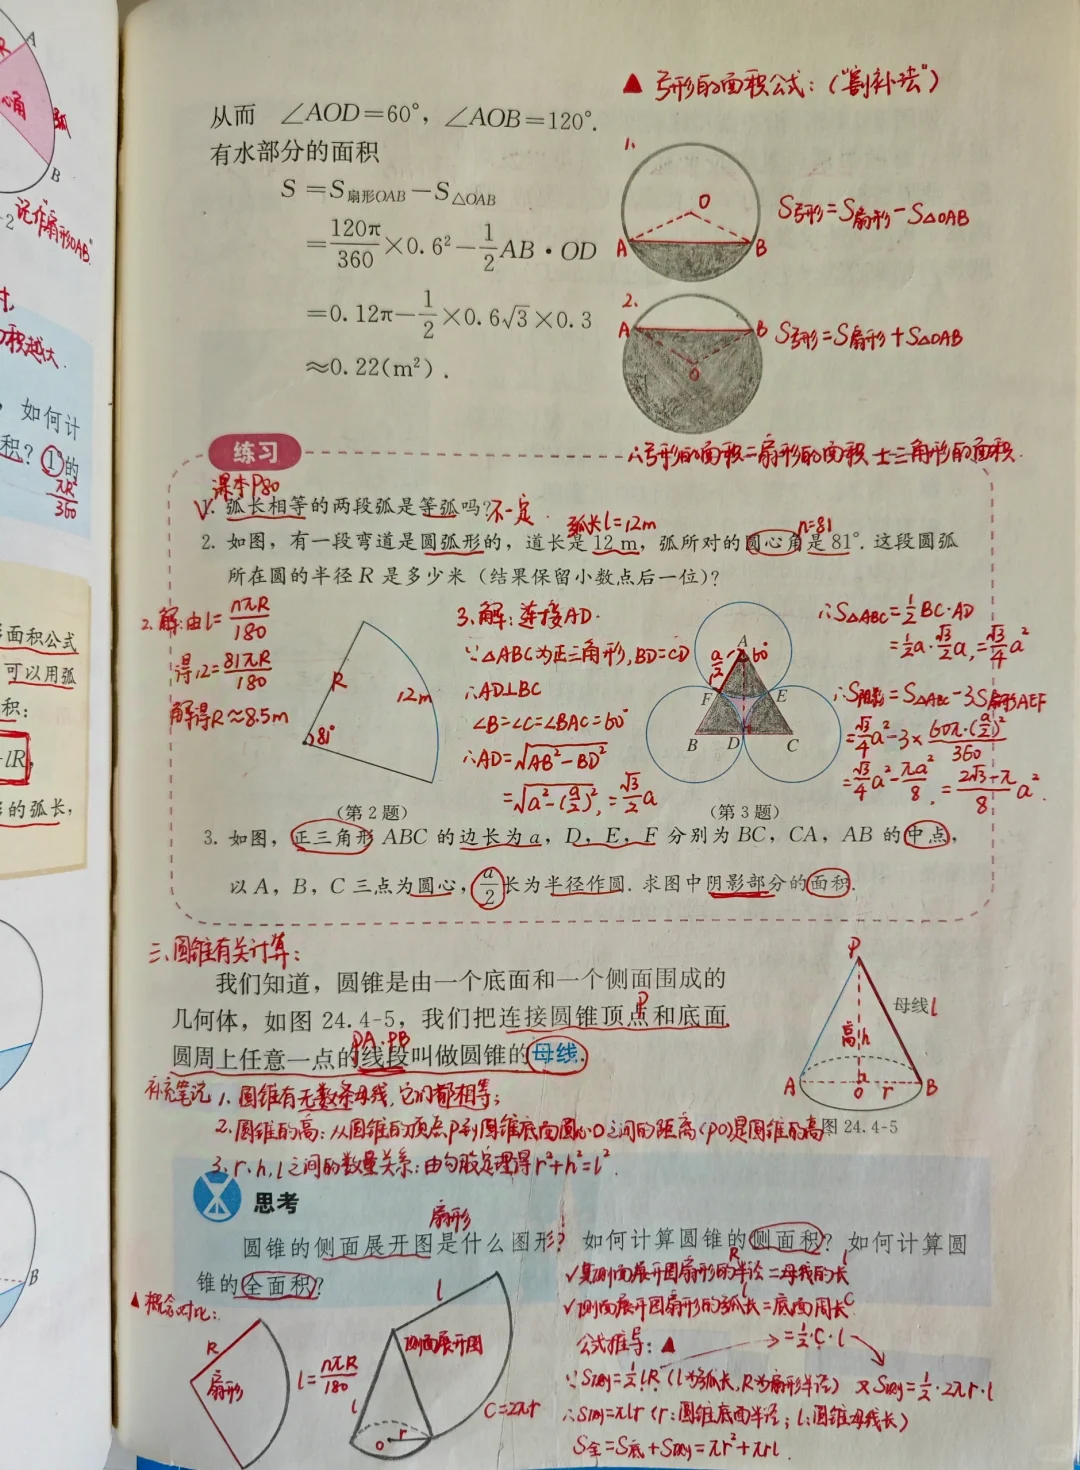 ▲ 弓形的面积公式:("割补法")
从而 ∠AOD=60°,∠AOB=120°.
有水部分的面积
S=S扇形OAB-S△OAB
=120π/360×0.6²-1/2AB·OD
=0.12π-1/2×0.6√3×0.3
≈0.22(m²).
1.
O
A
B
S弓形=S扇形-S△OAB
2.
A
B
O
S弓形=S扇形+S△OAB
∴弓形的面积=扇形的面积±三角形的面积.
练习
课本P80
1. 弧长相等的两段弧是等弧吗?不一定.
弧长l=12m
n=81
2. 如图,有一段弯道是圆弧形的,道长是12 m,弧所对的圆心角是81°.这段圆弧
所在圆的半径R是多少米(结果保留小数点后一位)?
2.解:由l=nπR/180
得12=81πR/180
解得R≈8.5m
R
12m
81°
3.解:连接AD.
∵△ABC为正三角形,BD=CD
∴AD⊥BC
∠B=∠C=∠BAC=60°
∴AD=√AB²-BD²
=√a²-(a/2)²,=√3/2a
A
a/2
60°
F
E
B
D
C
∴S△ABC=1/2BC·AD
=1/2a·√3/2a,=√3/4a²
∴S阴影=S△ABC-3S扇形AEF
=√3/4a²-3×60π·(a/2)²/360
=√3/4a²-πa²/8,=2√3-π/8a².
(第2题)
(第3题)
3. 如图,正三角形ABC的边长为a,D,E,F分别为BC,CA,AB的中点,
以A,B,C三点为圆心,a/2长为半径作圆.求图中阴影部分的面积.
三、圆锥有关计算:
我们知道,圆锥是由一个底面和一个侧面围成的
几何体,如图24.4-5,我们把连接圆锥顶点和底面
P
圆周上任意一点的线段叫做圆锥的母线.
PA、PB
P
母线l
高h
A
O
r
B
图24.4-5
补充笔记 1.圆锥有无数条母线,它们都相等;
2.圆锥的高:从圆锥的顶点P到圆锥底面圆心O之间的距离(PO)是圆锥的高
3.r、h、l之间的数量关系:由勾股定理得r²+h²=l².
思考
扇形
圆锥的侧面展开图是什么图形?如何计算圆锥的侧面积?如何计算圆
锥的全面积?
R
l
√其侧面展开图扇形的半径=母线的长
l
C
√侧面展开图扇形的弧长=底面周长
▲概念对比:
R
扇形
l=nπR/180
l
侧面展开图
l
O
r
C=2πr
公式推导:▲
=1/2·C·l
∵S侧=1/2lR(l为弧长,R为扇形半径) 又S侧=1/2·2πr·l
∴S侧=πlr(r:圆锥底面半径;l:圆锥母线长)
S全=S底+S侧=πr²+πrl.
A
R
心角
弧
B
记作"扇形OAB"
时,
面积越大.
如何计
积?①1°的
πR²/360
面积公式
可以用弧
积:
lR,
的弧长,
B